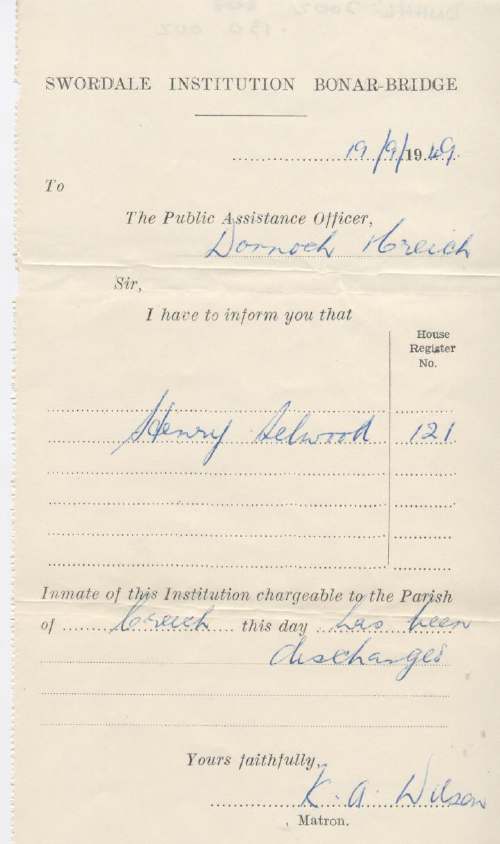 SWORDALE INSTITUTION BONAR-BRIDGE
19/9/1949.
To
The Public Assistance Officer,
Dornoch Creich
Sir,
I have to inform you that
House
Register
No.
Henry Selwood 121
Inmate of this Institution chargeable to the Parish
of Creich this day has been
discharged
Yours faithfully,
K. A. Wilson
Matron.